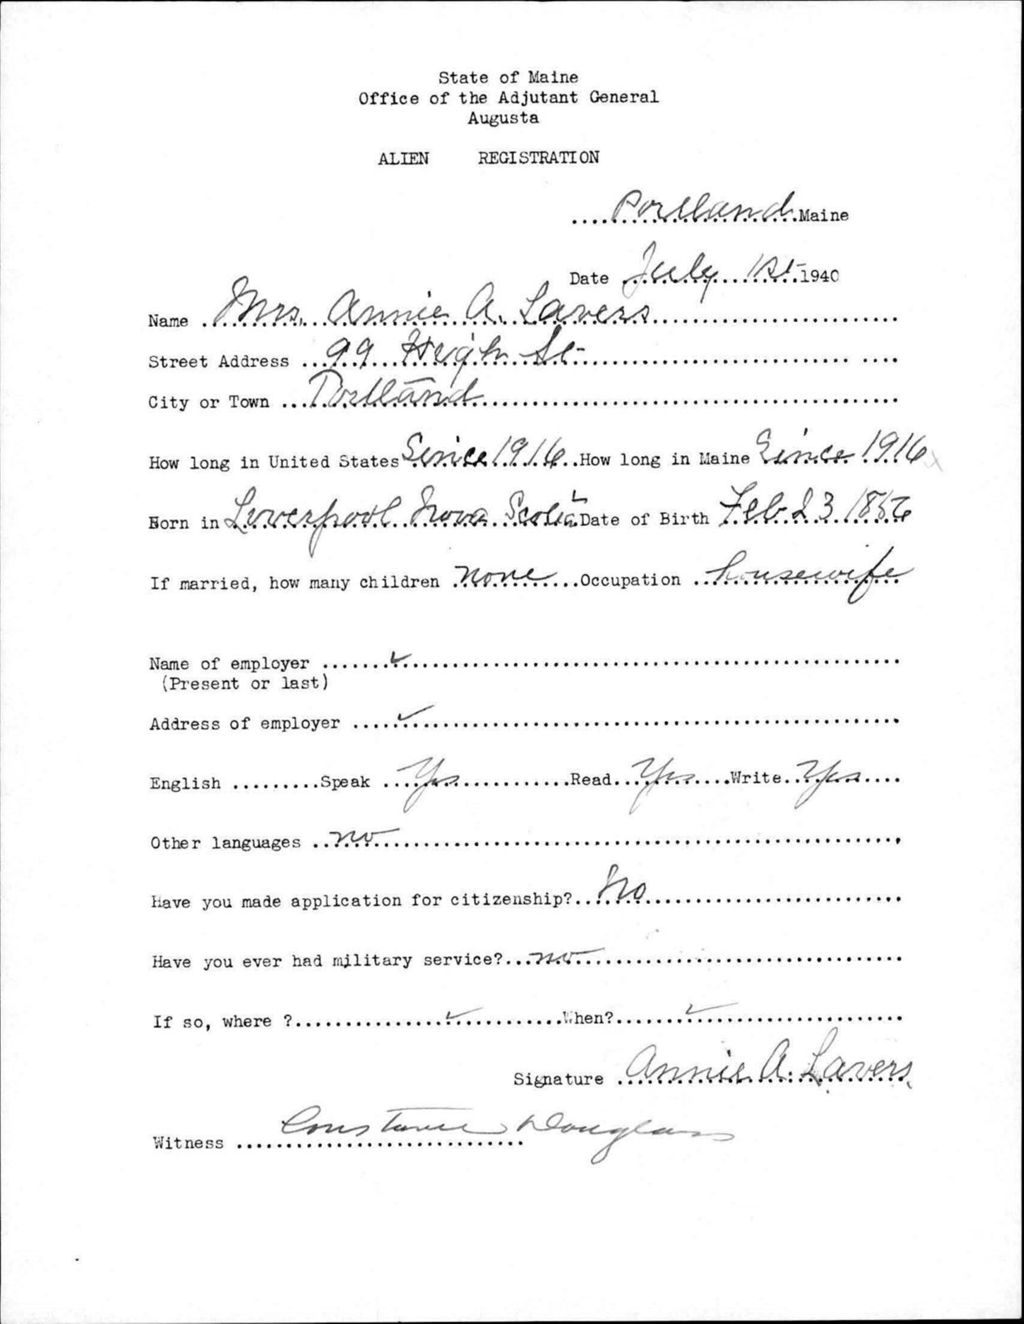 State of Maine
Office of the Adjutant General
Augusta
ALIEN REGISTRATION
....Portland.Maine
Date July 1st 1940
Name Mrs. Annie A. Lavers
Street Address 99 High St
City or Town Portland
How long in United States Since 1916 How long in Maine Since 1916
Born in Liverpool Nova Scotia Date of Birth Feb 23 1886
If married, how many children none Occupation housewife
Name of employer ✓
(Present or last)
Address of employer ✓
English Speak Yes Read Yes Write Yes
Other languages no
Have you made application for citizenship? No
Have you ever had military service? no
If so, where ? ✓ When? ✓
Signature Annie A. Lavers
Witness Constance Douglass